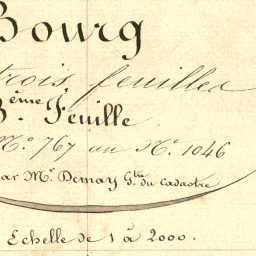 Bourg
trois feuilles
3.ème Feuille
N.º 767 au N.º 1046
par M.r Demay G.tre du Cadastre
Echelle de 1 à 2000.